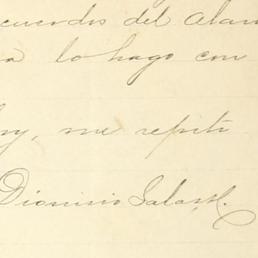 cuerdos del Alam
a lo hago con
hoy, me repito
Dionisio Salas